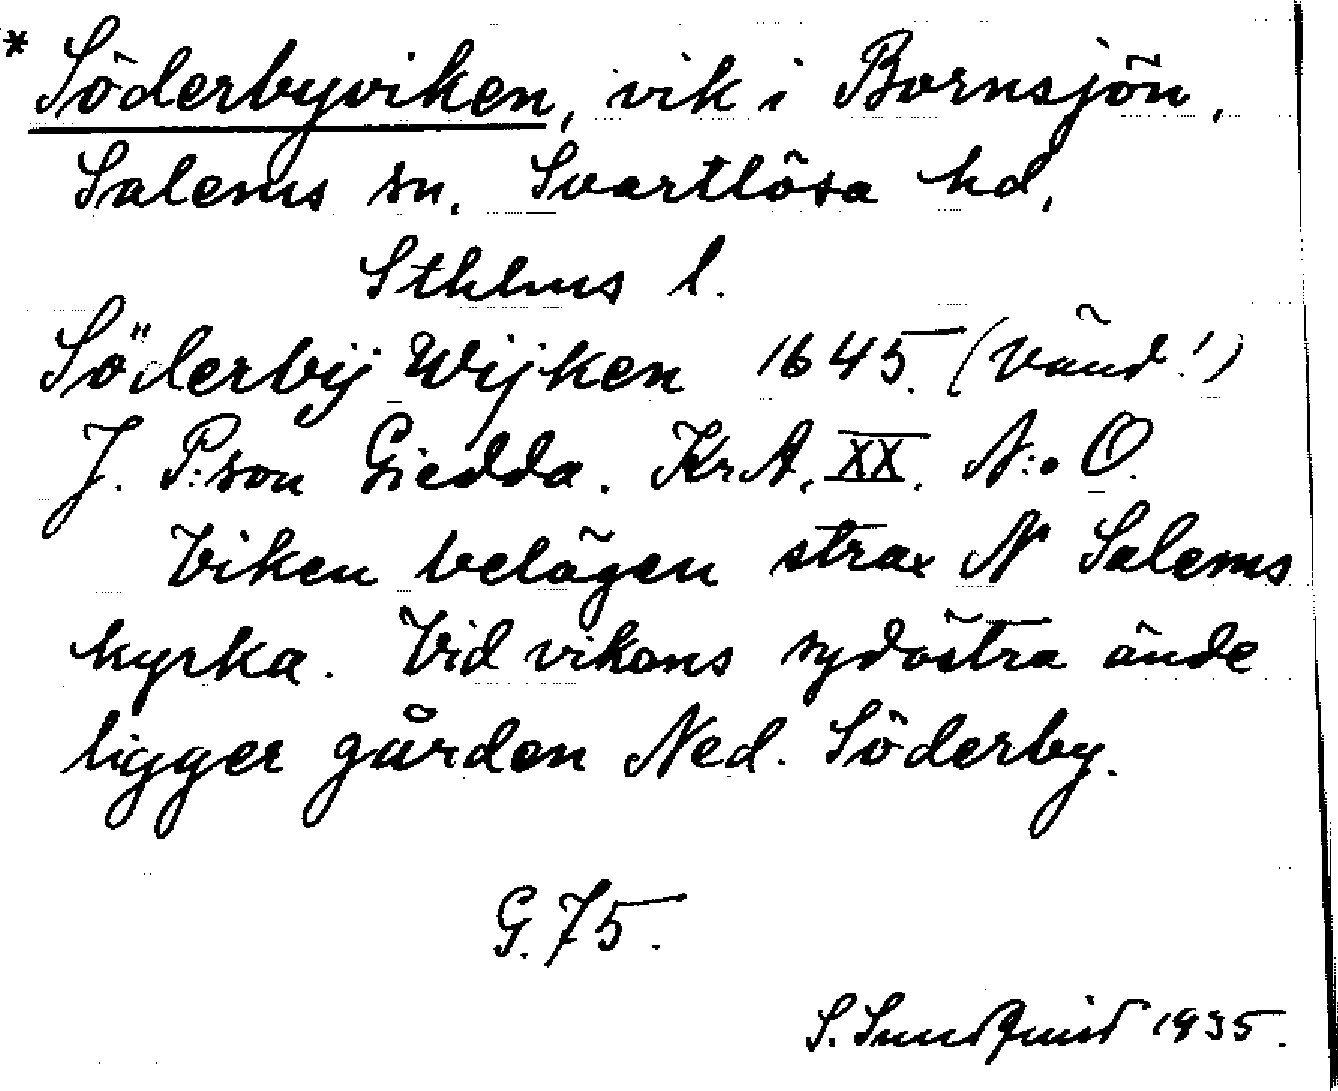 * Söderbyviken, vik i Bornsjön,
Salems sn. Svartlösa hd,
Sthlms l.
Söderbÿ Wijken 1645. (Vänd!)
J. P:son Giedda. Kr.A. XX. N:o O.
Viken belägen strax N Salems
kyrka. Vid vikens sydöstra ände
ligger gården Ned. Söderby.
G. 75.
S. Sundquist 1935.